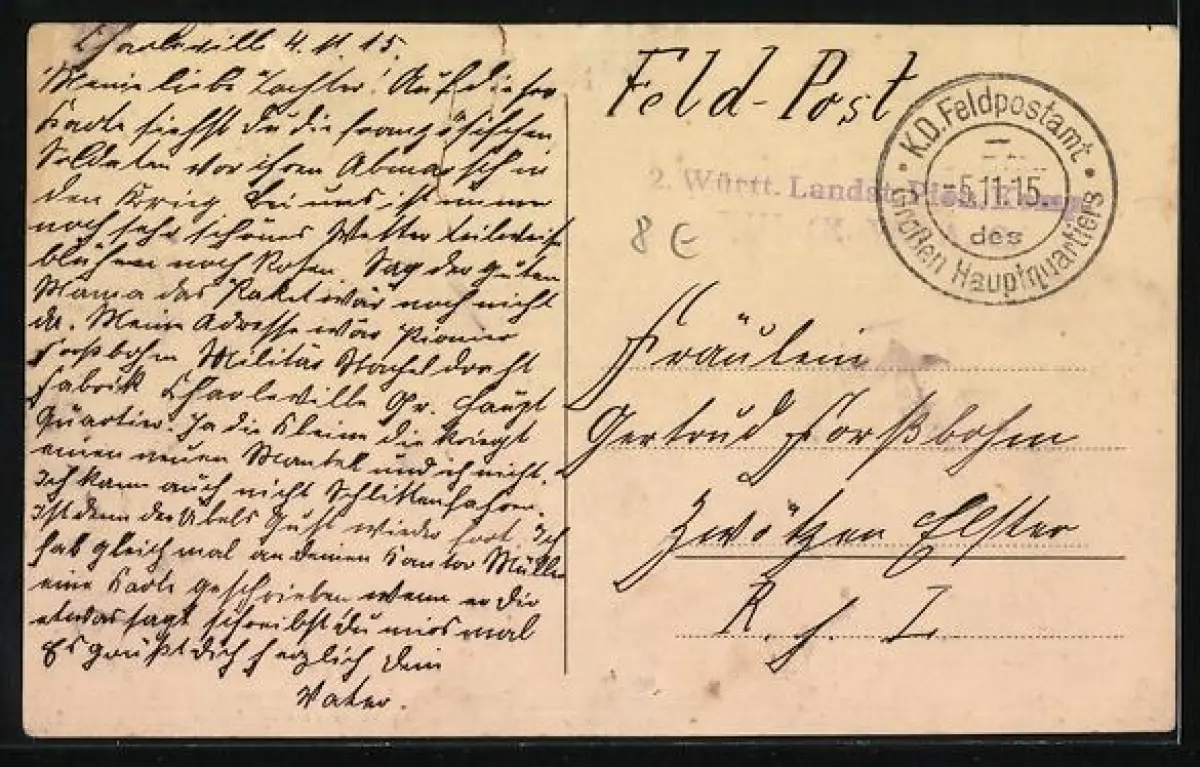 Charleville 4.11.15.
Meine liebe Tochter! Auf dieser
Karte siehst Du die französischen
Soldaten vor ihrem Abmarsch in
den Krieg. Bei uns ist immer
noch sehr schönes Wetter teilweise
blühen noch Rosen. Sag der guten
Mama das Paket wär noch nicht
da. Meine Adresse wär Pionier
Forßbohm Militär Stacheldraht
fabrik Charleville Gr. Haupt
Quartier. Ja die Kleine die kriegt
einen neuen Mantel und ich nicht.
Ich kann auch nicht Schlittenfahren.
Ist denn der Gust wieder fort. Ich
hab gleich mal an deinen Kantor Müller
eine Karte geschrieben wenn er Dir
etwas sagt schreibst du mirs mal
Es grüßt Dich herzlich Dein
Vater.
Feld-Post
K.D. Feldpostamt
-5.11.15.
des
Großen Hauptquartiers
2. Württ. Landst. Pion. Komp.
8 E
Fräulein
Gertrud Forßbohm
Zwötzen Elster
R. j. L.